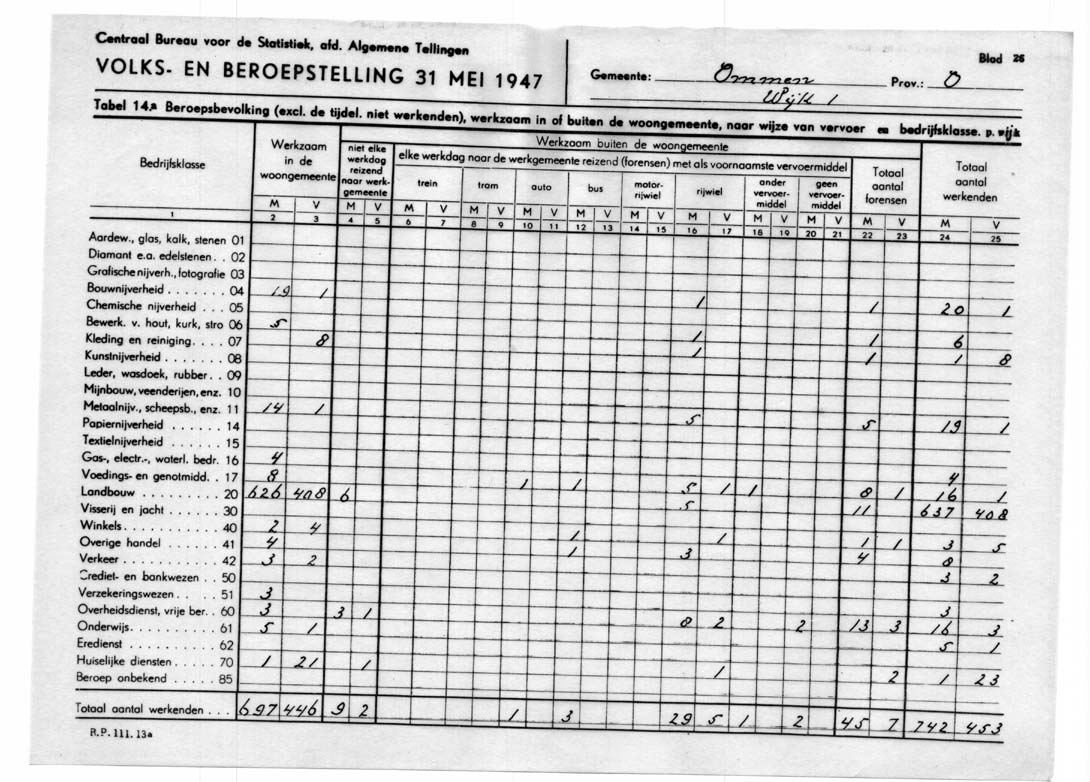 Centraal Bureau voor de Statistiek, afd. Algemene Tellingen
Blad 26
VOLKS- EN BEROEPSTELLING 31 MEI 1947
Gemeente: Ommen Prov.: O
Wijk 1
Tabel 14.a Beroepsbevolking (excl. de tijdel. niet werkenden), werkzaam in of buiten de woongemeente, naar wijze van vervoer en bedrijfsklasse. p. wijk
Bedrijfsklasse
Werkzaam
in de
woongemeente
Werkzaam buiten de woongemeente
niet elke
werkdag
reizend
naar werk-
gemeente
elke werkdag naar de werkgemeente reizend (forensen) met als voornaamste vervoermiddel
trein
tram
auto
bus
motor-
rijwiel
rijwiel
ander
vervoer-
middel
geen
vervoer-
middel
Totaal
aantal
forensen
Totaal
aantal
werkenden
M V M V M V M V M V M V M V M V M V M V M V M V
1 2 3 4 5 6 7 8 9 10 11 12 13 14 15 16 17 18 19 20 21 22 23 24 25
Aardew., glas, kalk, stenen 01
Diamant e.a. edelstenen . . 02
Grafische nijverh., fotografie 03
Bouwnijverheid . . . . . . . 04 19 1 1 1 20 1
Chemische nijverheid . . . 05
Bewerk. v. hout, kurk, stro 06 5 1 1 6
Kleding en reiniging. . . . 07 8 1 1 1 8
Kunstnijverheid . . . . . . . 08
Leder, wasdoek, rubber. . 09
Mijnbouw, veenderijen, enz. 10
Metaalnijv., scheepsb., enz. 11 14 1 5 5 19 1
Papiernijverheid . . . . . . 14
Textielnijverheid . . . . . . 15
Gas-, electr.-, waterl. bedr. 16 4 4
Voedings- en genotmidd. . 17 8 1 1 5 1 1 8 1 16 1
Landbouw . . . . . . . . . . 20 626 408 6 5 11 637 408
Visserij en jacht . . . . . . 30
Winkels . . . . . . . . . . . 40 2 4 1 1 1 1 3 5
Overige handel . . . . . . 41 4 1 3 4 8
Verkeer . . . . . . . . . . . 42 3 2 3 2
Crediet- en bankwezen . . 50
Verzekeringswezen . . . . 51 3 3
Overheidsdienst, vrije ber. . 60 3 3 1 8 2 2 13 3 16 3
Onderwijs. . . . . . . . . . 61 5 1 5 1
Eredienst . . . . . . . . . . 62
Huiselijke diensten . . . . . 70 1 21 1 1 2 1 23
Beroep onbekend . . . . . 85
Totaal aantal werkenden . . . 697 446 9 2 1 3 29 5 1 2 45 7 742 453
R.P. 111. 13a